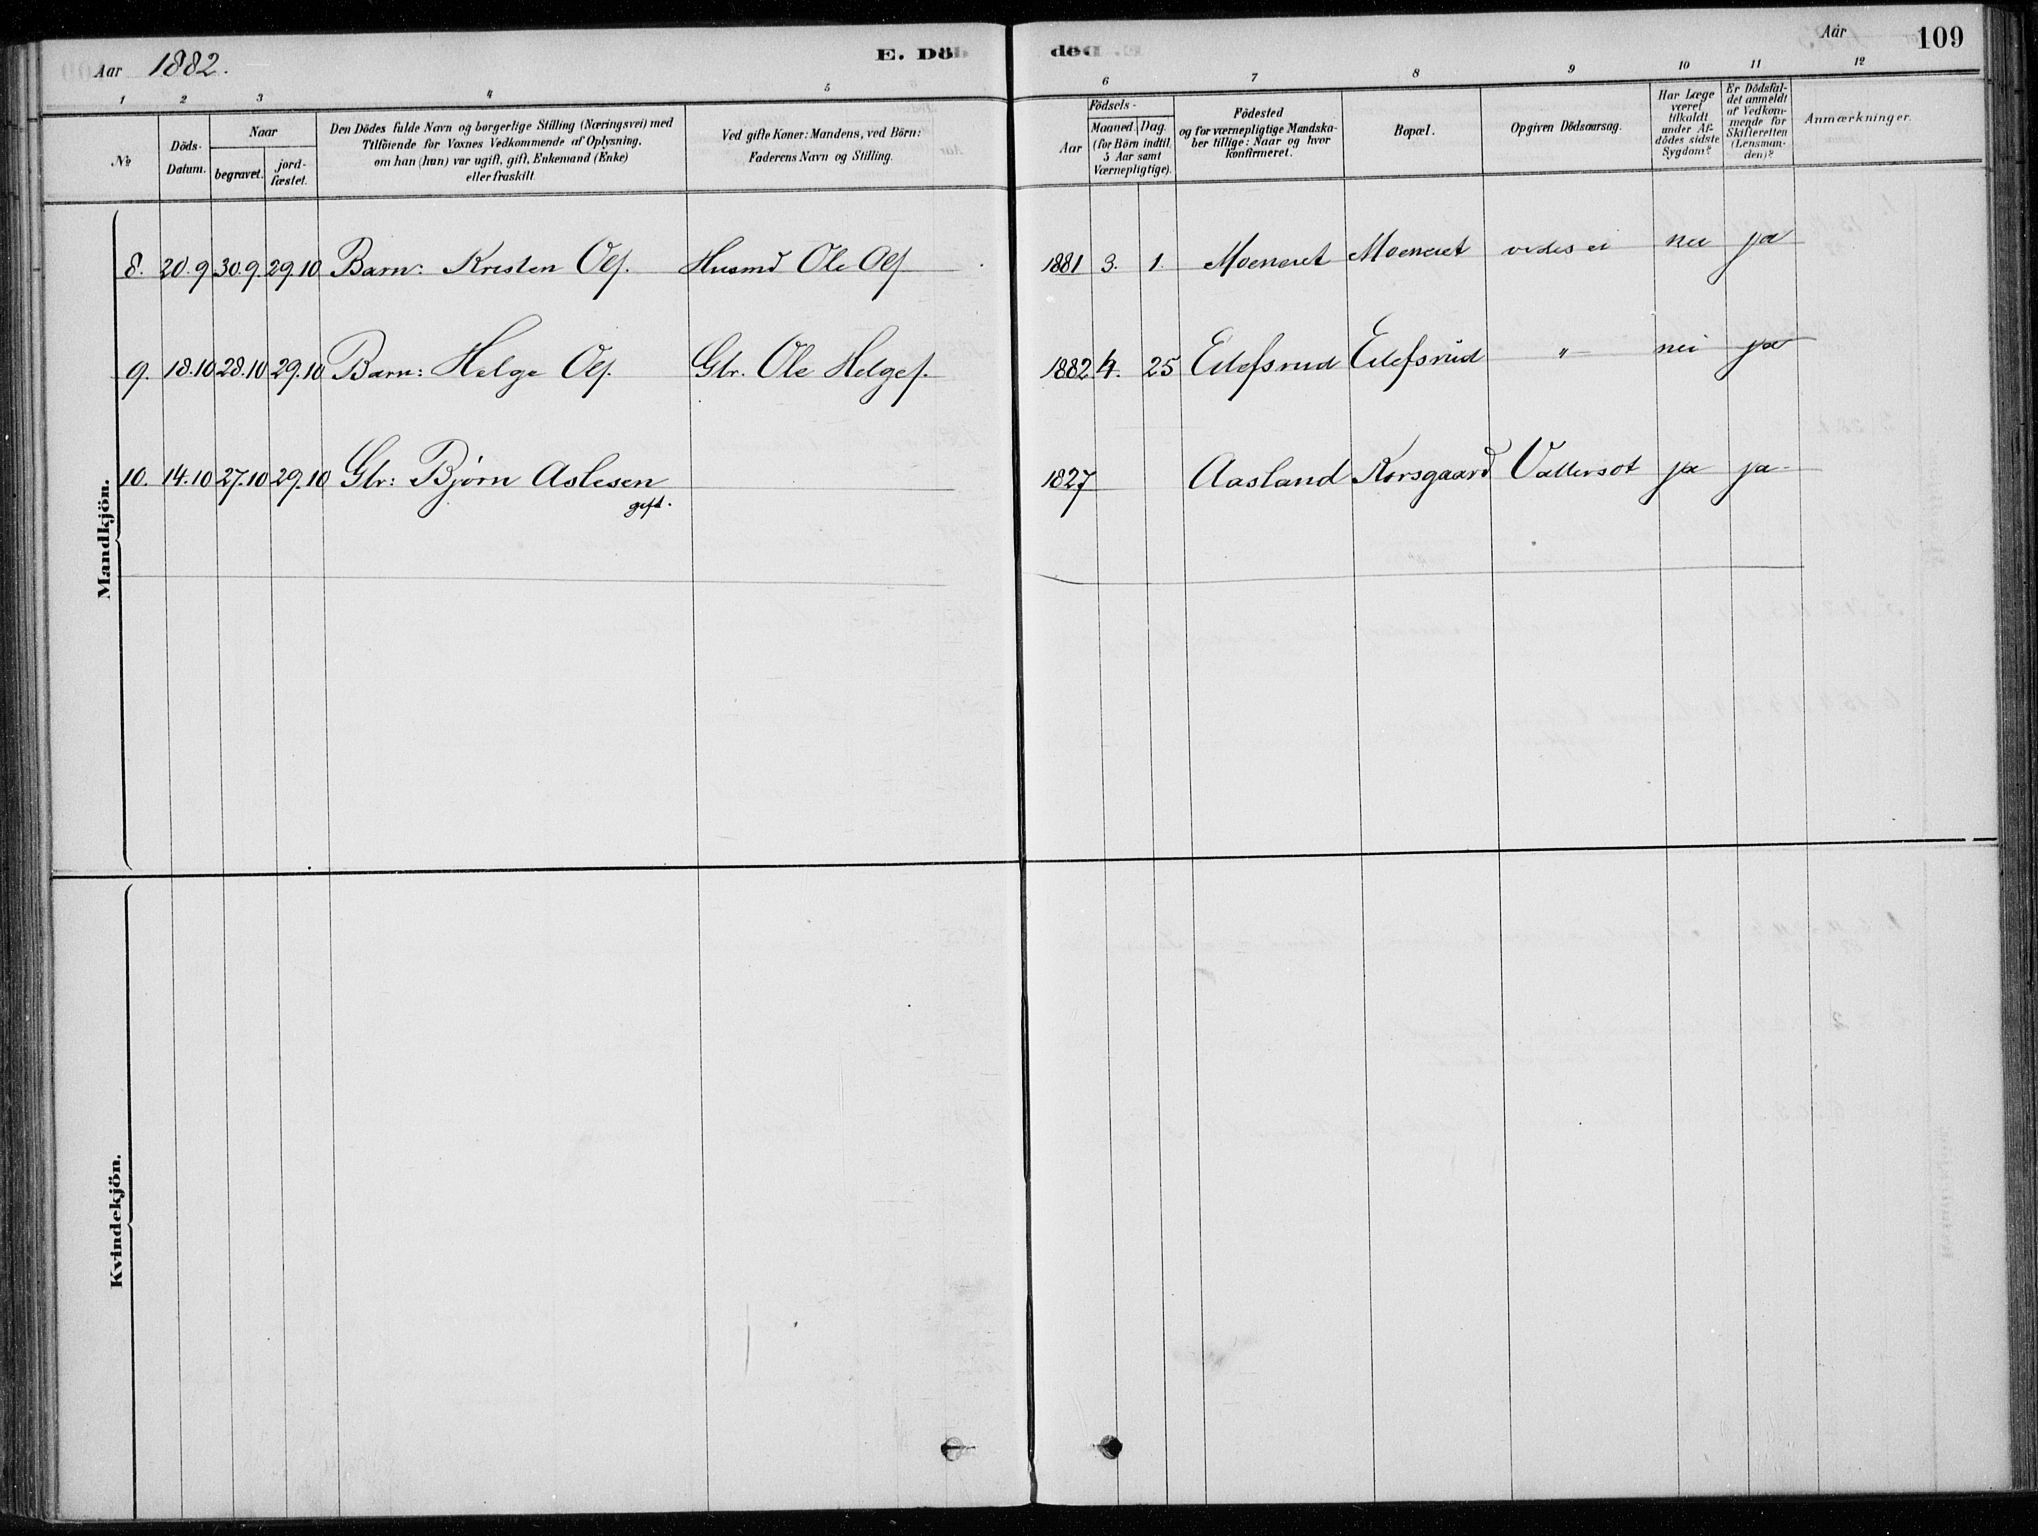 Aar 1882.
E. Dö
död
Aar
109
1 2 3 4 5 6 7 8 9 10 11 12
№
Döds-
Datum.
Naar
begravet.
jord-
fæstet.
Den Dödes fulde Navn og borgerlige Stilling (Næringsvei) med
Tilföiende for Voxnes Vedkommende af Oplysning,
om han (hun) var ugift, gift, Enkemand (Enke)
eller fraskilt.
Ved gifte Koner: Mandens, ved Börn:
Faderens Navn og Stilling.
Födsels-
Aar
Maaned.
Dag.
(for Börn indtil
5 Aar samt
Værnepligtige).
Födested
og for værnepligtige Mandska-
ber tillige: Naar og hvor
konfirmeret.
Bopæl.
Opgiven Dödsaarsag.
Har Læge
været
tilkaldt
under Af-
dödes sidste
Sygdom?
Er Dödsfal-
det anmeldt
af Vedkom-
mende for
Skifteretten
(Lensman-
den)?
Anmærkninger.
Mandkjön.
8. 20.9 30.9. 29.10 Barn: Kristen Ols. Husmd Ole Ols 1881 3. 1. Moeneret Moeneret vides ei nei ja
9. 18.10 28.10 29.10 Barn: Helge Ols. Gbr. Ole Helges. 1882 4. 25 Eilefsrud Eilefsrud " nei ja
10. 14.10 27.10 29.10 Gbr: Bjørn Aslesen 1827 Aasland Korsgaard Vattersot ja ja
gift.
Kvindekjön.